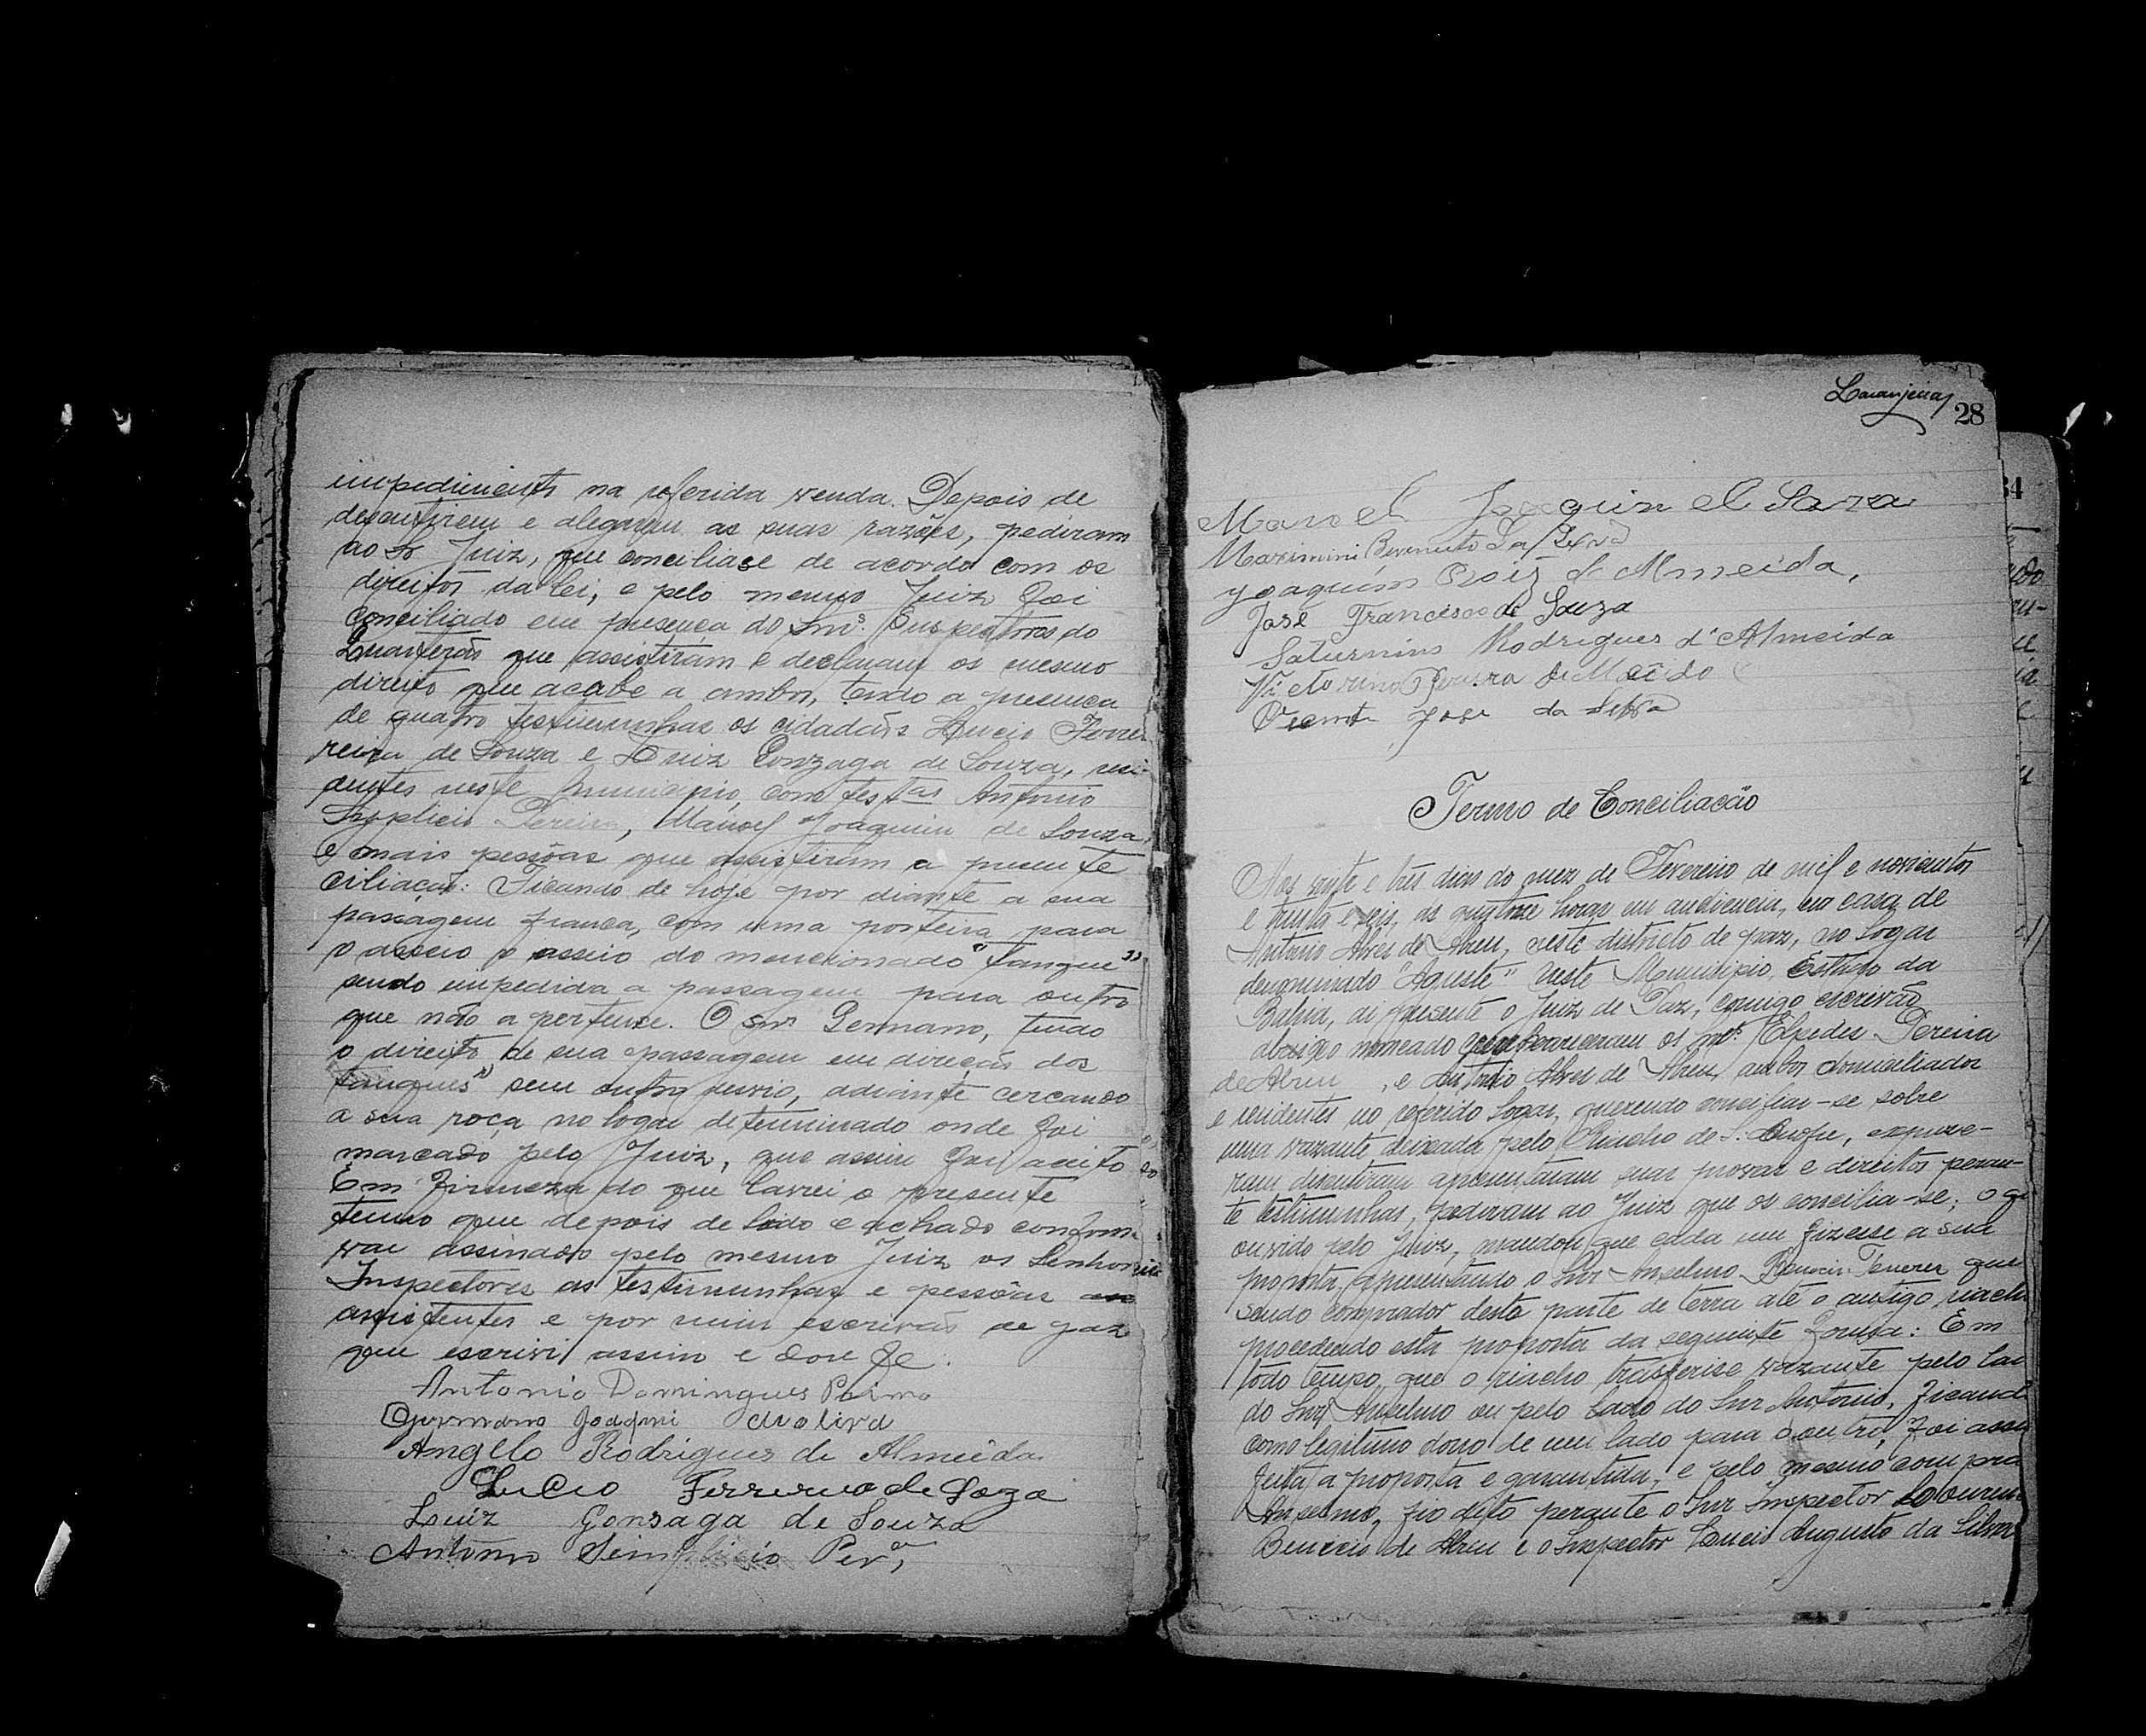 impedimento na referida venda. Depois de
descutirem e alegarem as suas razões, pediram
ao Sr Juiz, que conciliase de acordo com os
direitos da lei, e pelo mesmo Juiz foi
conciliado em presença do Snrs. Inspectores do
Quarterão que assistiram e declaram os mesmo
direito que acabe a ambos, tendo a presença
de quatro testimunhas os cidadãos Lucio Ferre
reira de Souza e Luiz Gonzaga de Souza, resi-
dentes neste Municipio, com testas Antonio
Simplicio Pereira, Manoel Joaquim de Souza,
e mais pessôas que assistiram a presente
ciliação: Ficando de hoje por diante a sua
passagem franca, com uma porteira para
o asseio o asseio do mencionado "tanque"
sendo impedida a passagem para outro
que não a pertence. O Snr Germano, tendo
o direito de sua passagem em direção dos
tanques" sem outro desvio, adiante cercando
a sua roça no logar determinado onde foi
marcado pelo Juiz, que assim foi aceito
Em firmeza do que lavrei o presente
termo que depois de lido e achado conform
vai assinado pelo mesmo Juiz os Senhores
Inspectores as testimunhas e pessôas
assistentes e por mim escrivão de paz
que escrivi assim e dou fe.
Antonio Domingues Primo
Germano Joaqui
Angelo Rodrigues de Almeida
Lucio Ferrerua de Soza
Louiz Gonsaga de Souza
Antonio Simplicio Perª,
Laranjeiras
28
Manoel Joaquin
Maximini Benenuto
Joaquim Roiz d Almeida,
José Francisco de Souza
Saturnino Rodrigues d'Almeida
Victorino
Vicente Jose da Silva
Termo de Conciliação
Aos vinte e três dias do mez de Fevereiro de mil e novicentos
e trinta e seis, as quatorze horas em audiencia, em casa de
Antonio Alves de Abreu, neste districto de paz, no logar
denominado "Aguste" neste Municipio, Estado da
Bahia, ai presente o Juiz de Paz, comigo escrivão
abaixo nomeado compareceram os Snrs. Elpedes Pereira
de Abreu, e Antonio Alves de Abreu, ambos domiciliados
e residentes no referido logar, querendo conciliar-se sobre
uma vazante deixada pelo Riacho de S. Onofre, expuze-
ram discutiram apresentaram suas provas e direitos peran-
te testimunhas, pediram ao Juiz que os concilia-se; o q
ouvido pelo Juiz, mandou que cada um fizesse a sua
proposta, apresentando o Snr Anselmo que
sendo comprador desta parte de terra até o antigo riach
procedendo esta proposta da seguinte forma: Em
todo tempo que o riacho trasferise vazante pelo lad
do Snr Anselmo ou pelo lado do Snr Antonio, ficand
como legitimo dono de um lado para o outro, foi assi
feita a proposta e garantida, e pelo mesmo compra
Anselmo, perante o Snr Inspector Lourenc
Benicio de Abreu e o Inspector Lucio Augusto da Silva